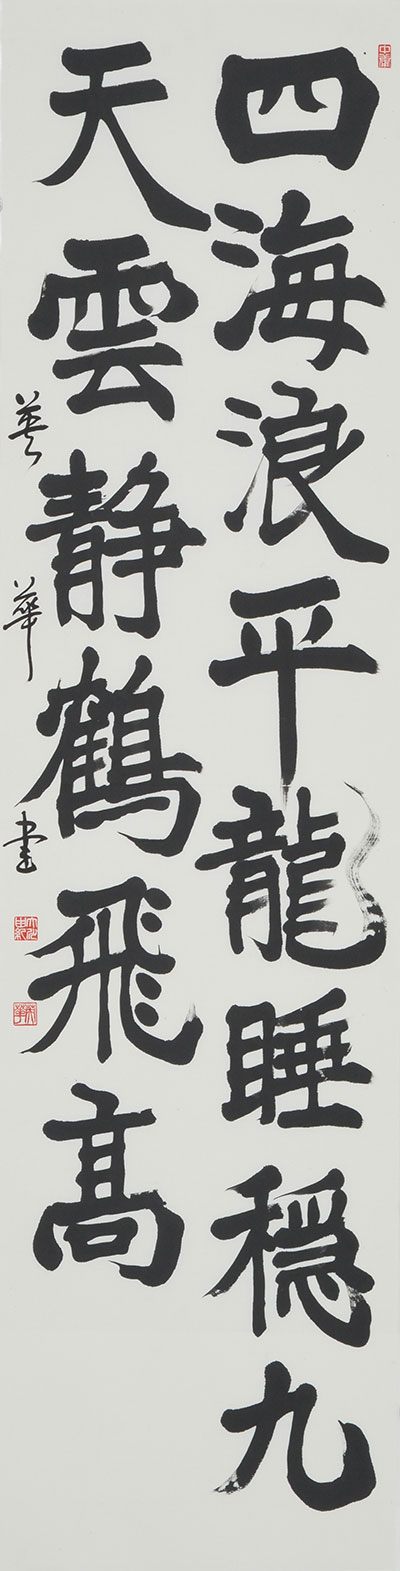 四海浪平龍睡穏九
天雲静鶴飛高
英華書